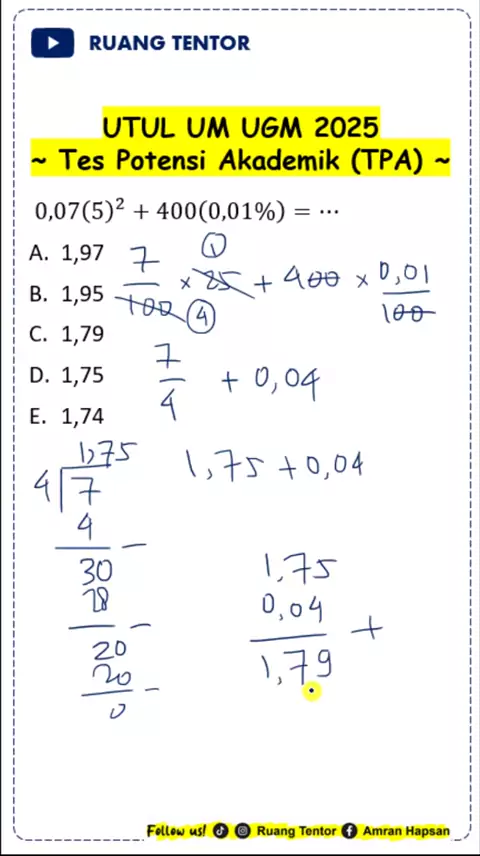 RUANG TENTOR
UTUL UM UGM 2025
~ Tes Potensi Akademik (TPA) ~
0,07(5)² + 400(0,01%) = ⋯
A. 1,97
B. 1,95
C. 1,79
D. 1,75
E. 1,74
7/100 × 25 + 400 × 0,01/100
1
4
7/4 + 0,04
1,75 + 0,04
1,75
4 7
4
30
28
20
20
0
1,75
0,04 +
1,79
Follow us! Ruang Tentor Amran Hapsan